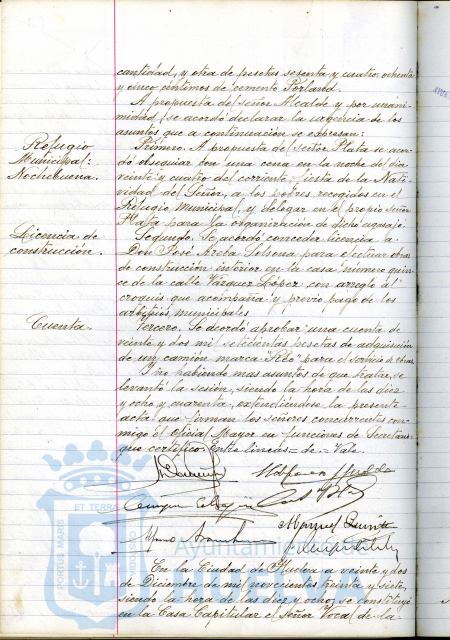 cantidad, y otra de pesetas sesenta y cuatro, ochenta
y cinco céntimos de cemento Porland.
A propuesta del señor Alcalde y por unani-
midad, se acordó declarar la urgencia de los
asuntos que a continuación se expresan:
Refugio
Municipal:
Nochebuena.
Primero. A propuesta del señor Plata se acor-
dó obsequiar con una cena en la noche del dia
veinte y cuatro del corriente, fiesta de la Nati-
vidad del Señor, a los pobres recogidos en el
Refugio Municipal, y delegar en el propio señor
Plata para la organización de dicho agasajo.
Licencia de
construcción.
Segundo. Se acordó conceder licencia a
Don José para efectuar obras
de construcción interior en la casa número quin-
ce de la calle Vázquez López con arreglo al
croquis que acompaña y previo pago de los
arbitrios municipales.
Cuenta.
Tercero. Se acordó aprobar una cuenta de
veinte y dos mil setecientas pesetas de adquisición
de un camión marca "Reo" para el servicio de obras.
Y no habiendo mas asuntos de que tratar, se
levantó la sesión, siendo la hora de las diez
y ocho y cuarenta, extendiéndose la presente
acta que firman los señores concurrentes con-
migo el Oficial Mayor en funciones de Secretario
que certifico. Entre lineas = de = Vale.
PORTUS MARIS
ET TERRAE
Ayuntamiento
En la Ciudad de Huelva a veinte y dos
de Diciembre de mil novecientos treinta y siete,
siendo la hora de las diez y ocho, se constituyó
en la Casa Capitular el Señor Vocal de la